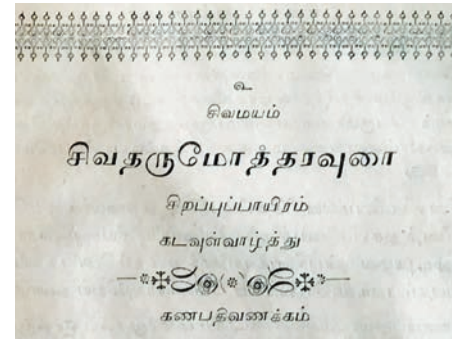 உ
சிவமயம்
சிவதருமோத்தரவுரை
சிறப்புப்பாயிரம்
கடவுள்வாழ்த்து
கணபதிவணக்கம்